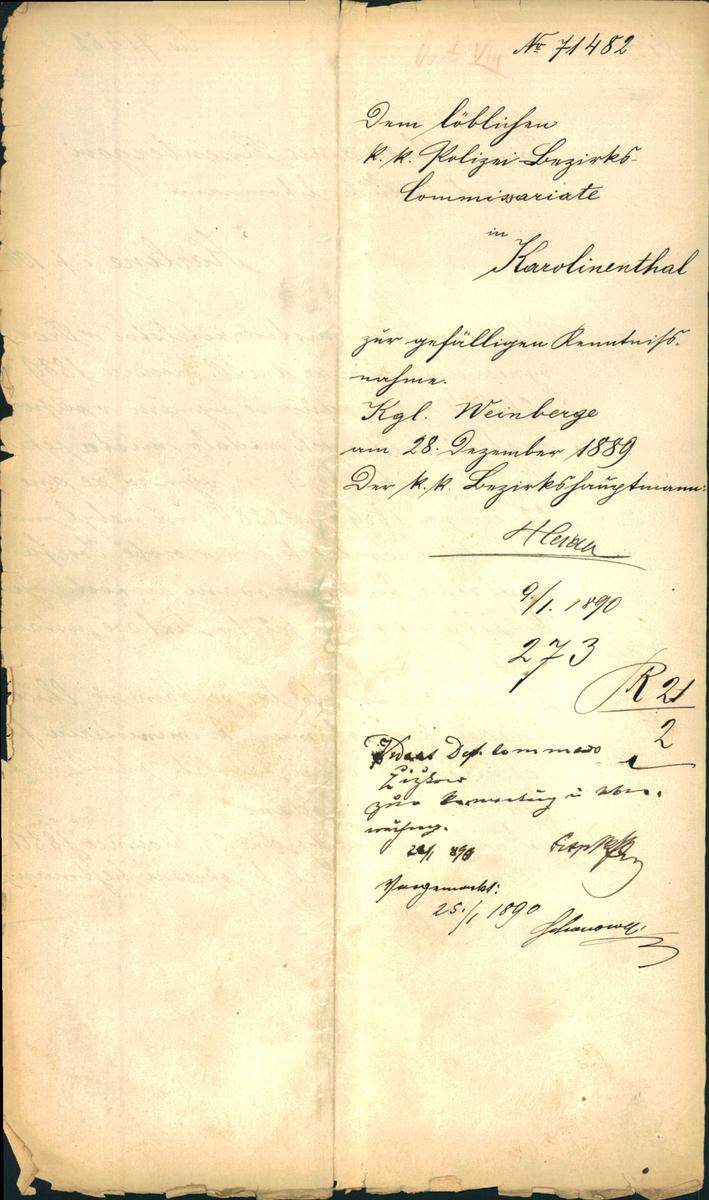 Nr 71482
Dem löblichen
k. k. Polizei-Bezirks-
Commissariate
in
Karolinenthal
zur gefälligen Kenntniß-
nahme.
Kgl. Weinberge
am 28. Dezember 1889
Der k. k. Bezirkshauptmann:
9/1. 1890
273
R 21
2
Žižkow
zur
Vorgemerkt:
25./1 1890